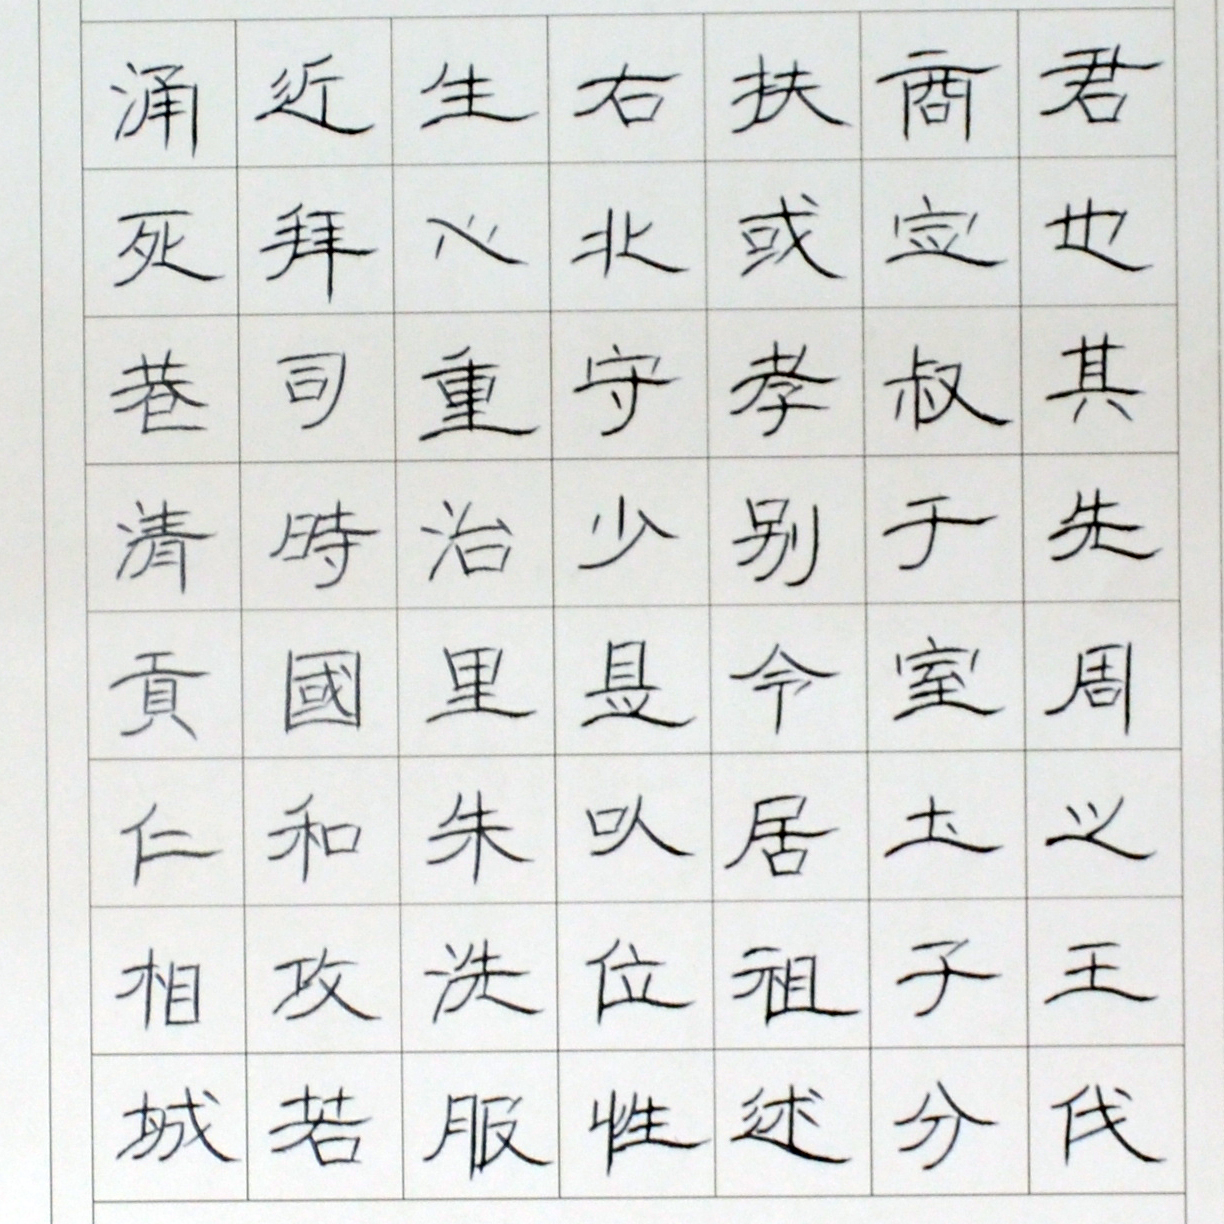 君也其先周之王伐
商定叔于室土子分
扶或孝别令居祖述
右北守少是以位性
生心重治里朱洗服
近拜司時國和攻若
涌死巷清貢仁相城